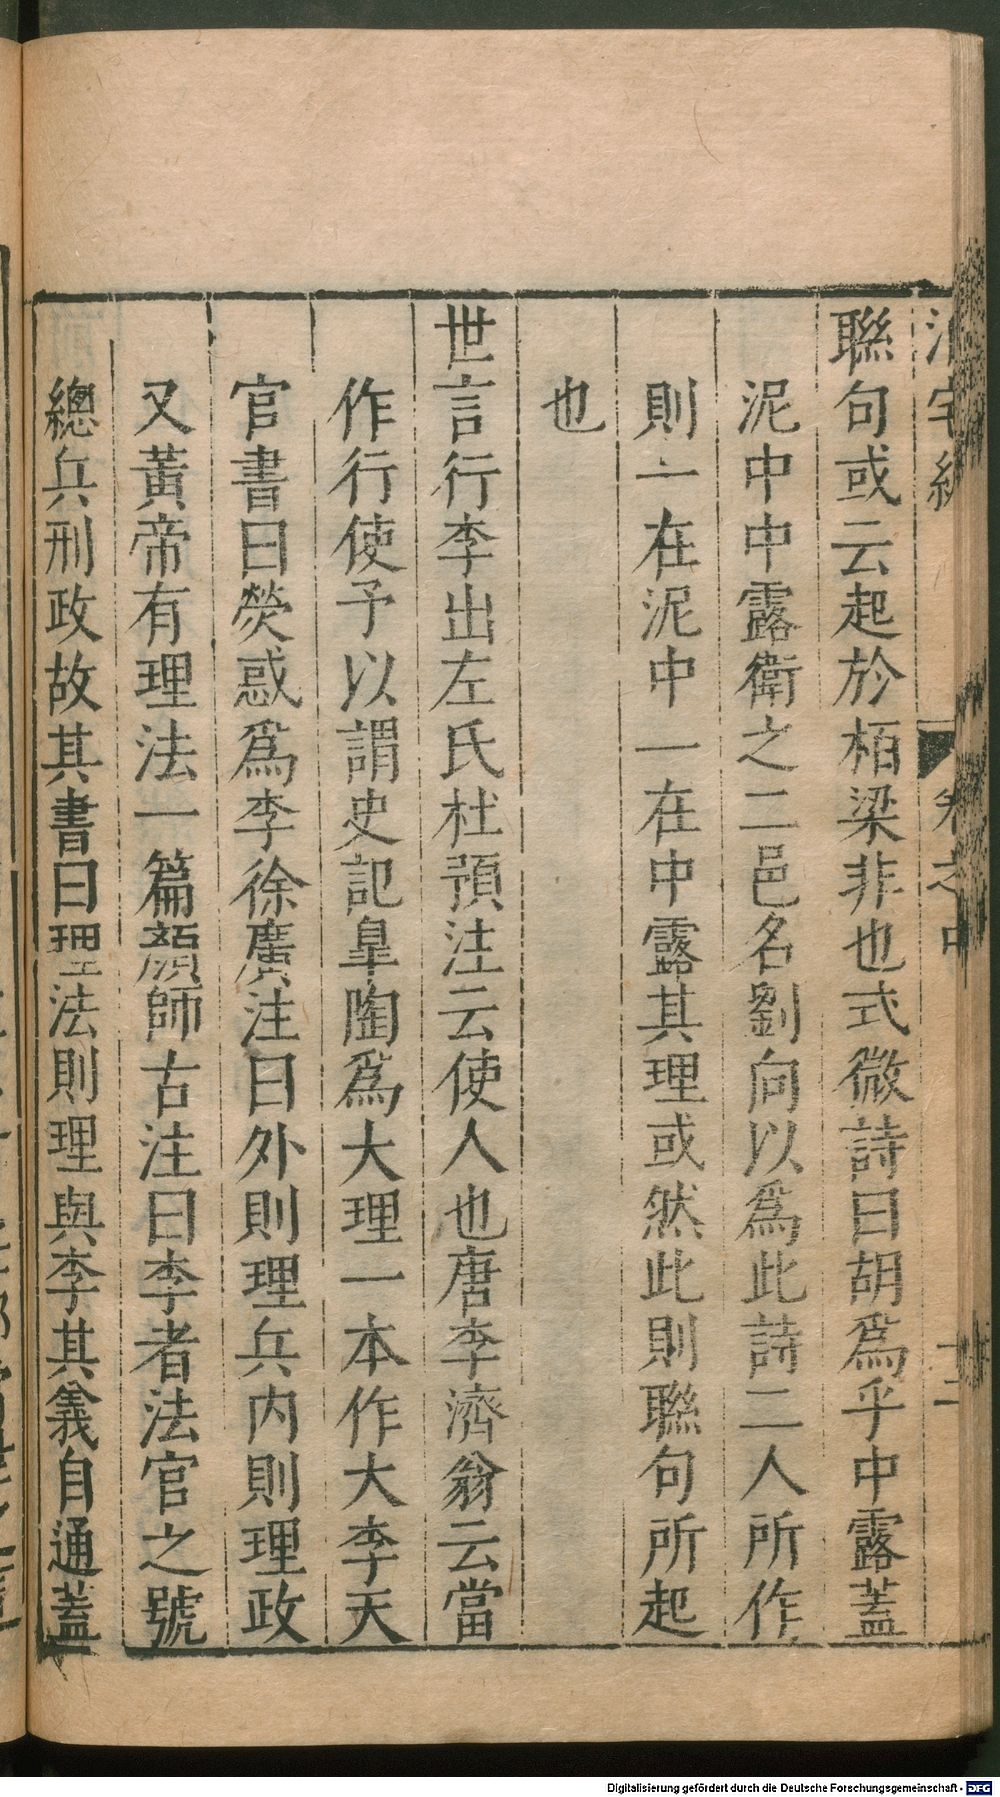 聯句或云起於栢梁非也式微詩曰胡爲乎中露蓋
泥中中露衛之二邑名劉向以爲此詩二人所作
則一在泥中一在中露其理或然此則聯句所起
也
世言行李出左氏杜預注云使人也唐李濟翁云當
作行使予以謂史記臯陶爲大理一本作大李天
官書曰熒惑爲李徐廣注曰外則理兵内則理政
又黃帝有理法一篇顏師古注曰李者法官之號
總兵刑政故其書曰理法則理與李其義自通蓋
Digitalisierung gefördert durch die Deutsche Forschungsgemeinschaft - DFG